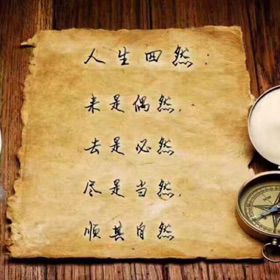 人生四然：
来是偶然，
去是必然
尽是当然，
顺其自然